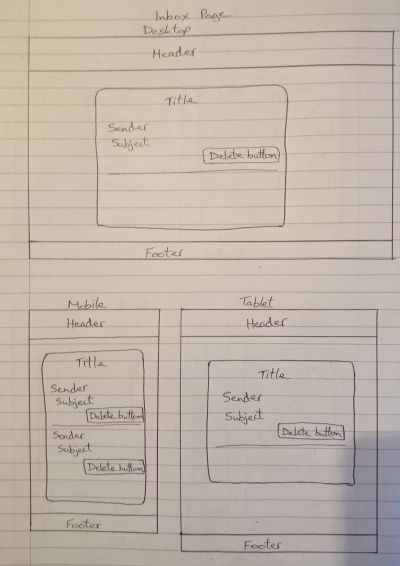 Inbox Page
Desktop
Header
Title
Sender
Subject
Delete button
Footer
Mobile
Header
Title
Sender
Subject
Delete button
Sender
Subject
Delete button
Footer
Tablet
Header
Title
Sender
Subject
Delete button
Footer